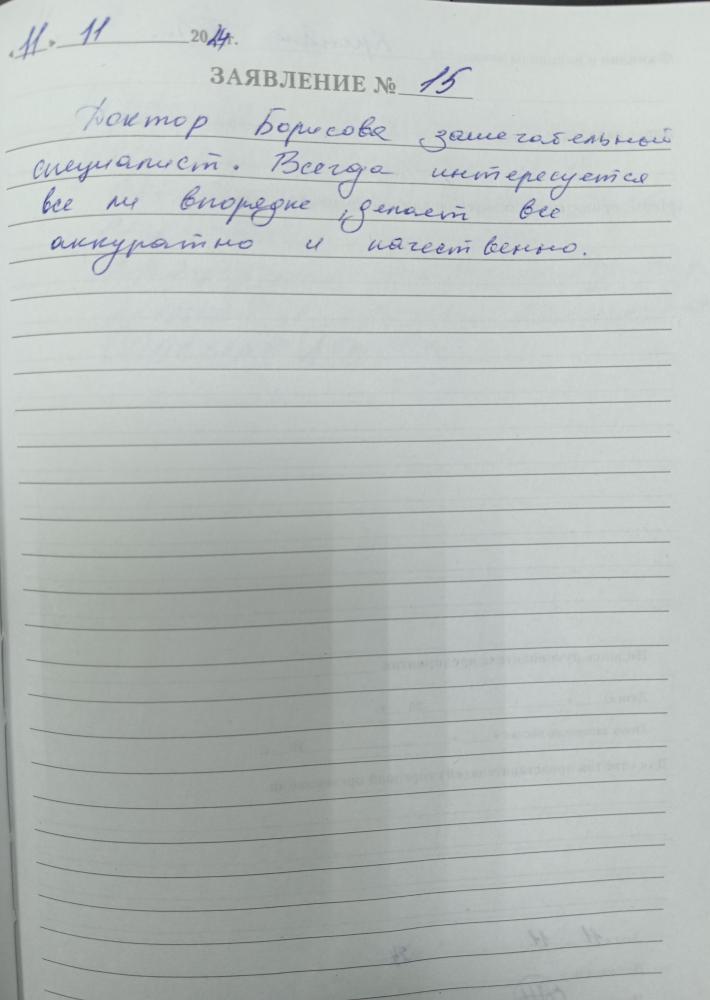 «11» 11 2024г.
ЗАЯВЛЕНИЕ № 15
Доктор Борисова замечательный
специалист. Всегда интересуется
все ли впорядке, делает все
аккуратно и качественно.